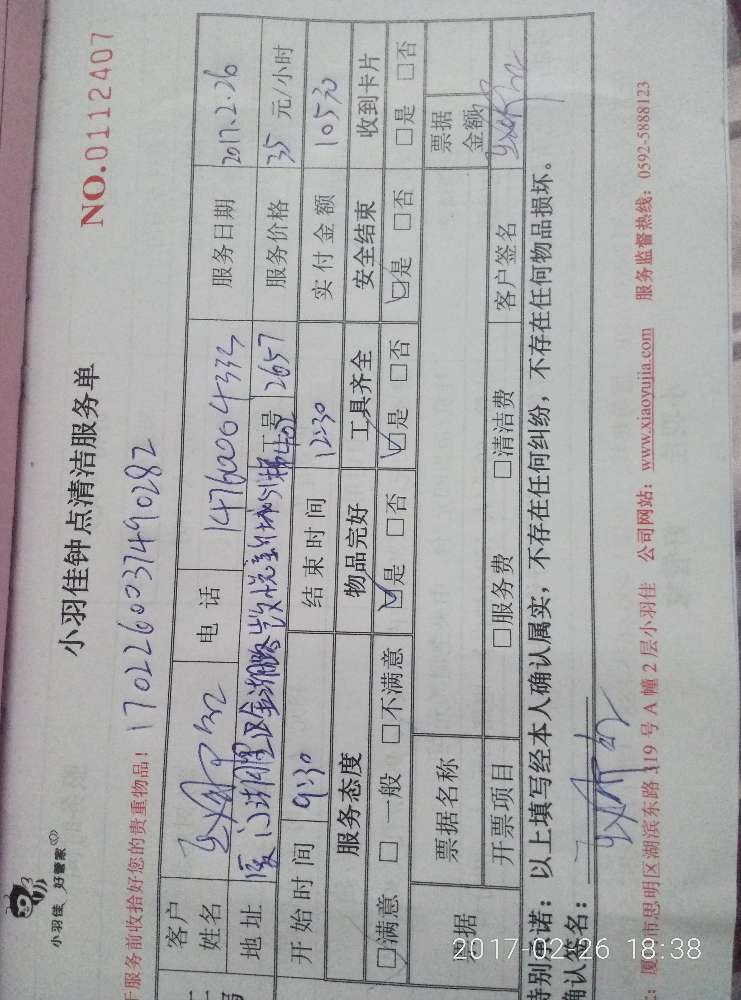 小羽佳 好管家
小羽佳钟点清洁服务单
NO.0112407
于服务前收拾好您的贵重物品!
17022600371490282
客户姓名 电话 14760064332 服务日期 2017.2.26
地址 工号 2657 服务价格 35 元/小时
开始时间 9:30 结束时间 12:30 实付金额
服务态度 物品完好 工具齐全 安全结束 收到卡片
☑满意 □一般 □不满意 ☑是 □否 ☑是 □否 ☑是 □否 □是 □否
票据 票据名称 票据金额
开票项目 □服务费 □清洁费 客户签名
特别承诺:以上填写经本人确认属实,不存在任何纠纷,不存在任何物品损坏。
确认签名:
厦门市思明区湖滨东路319号A幢2层小羽佳 公司网站:www.xiaoyujia.com 服务监督热线:0592-5888123
2017-02-26 18:38